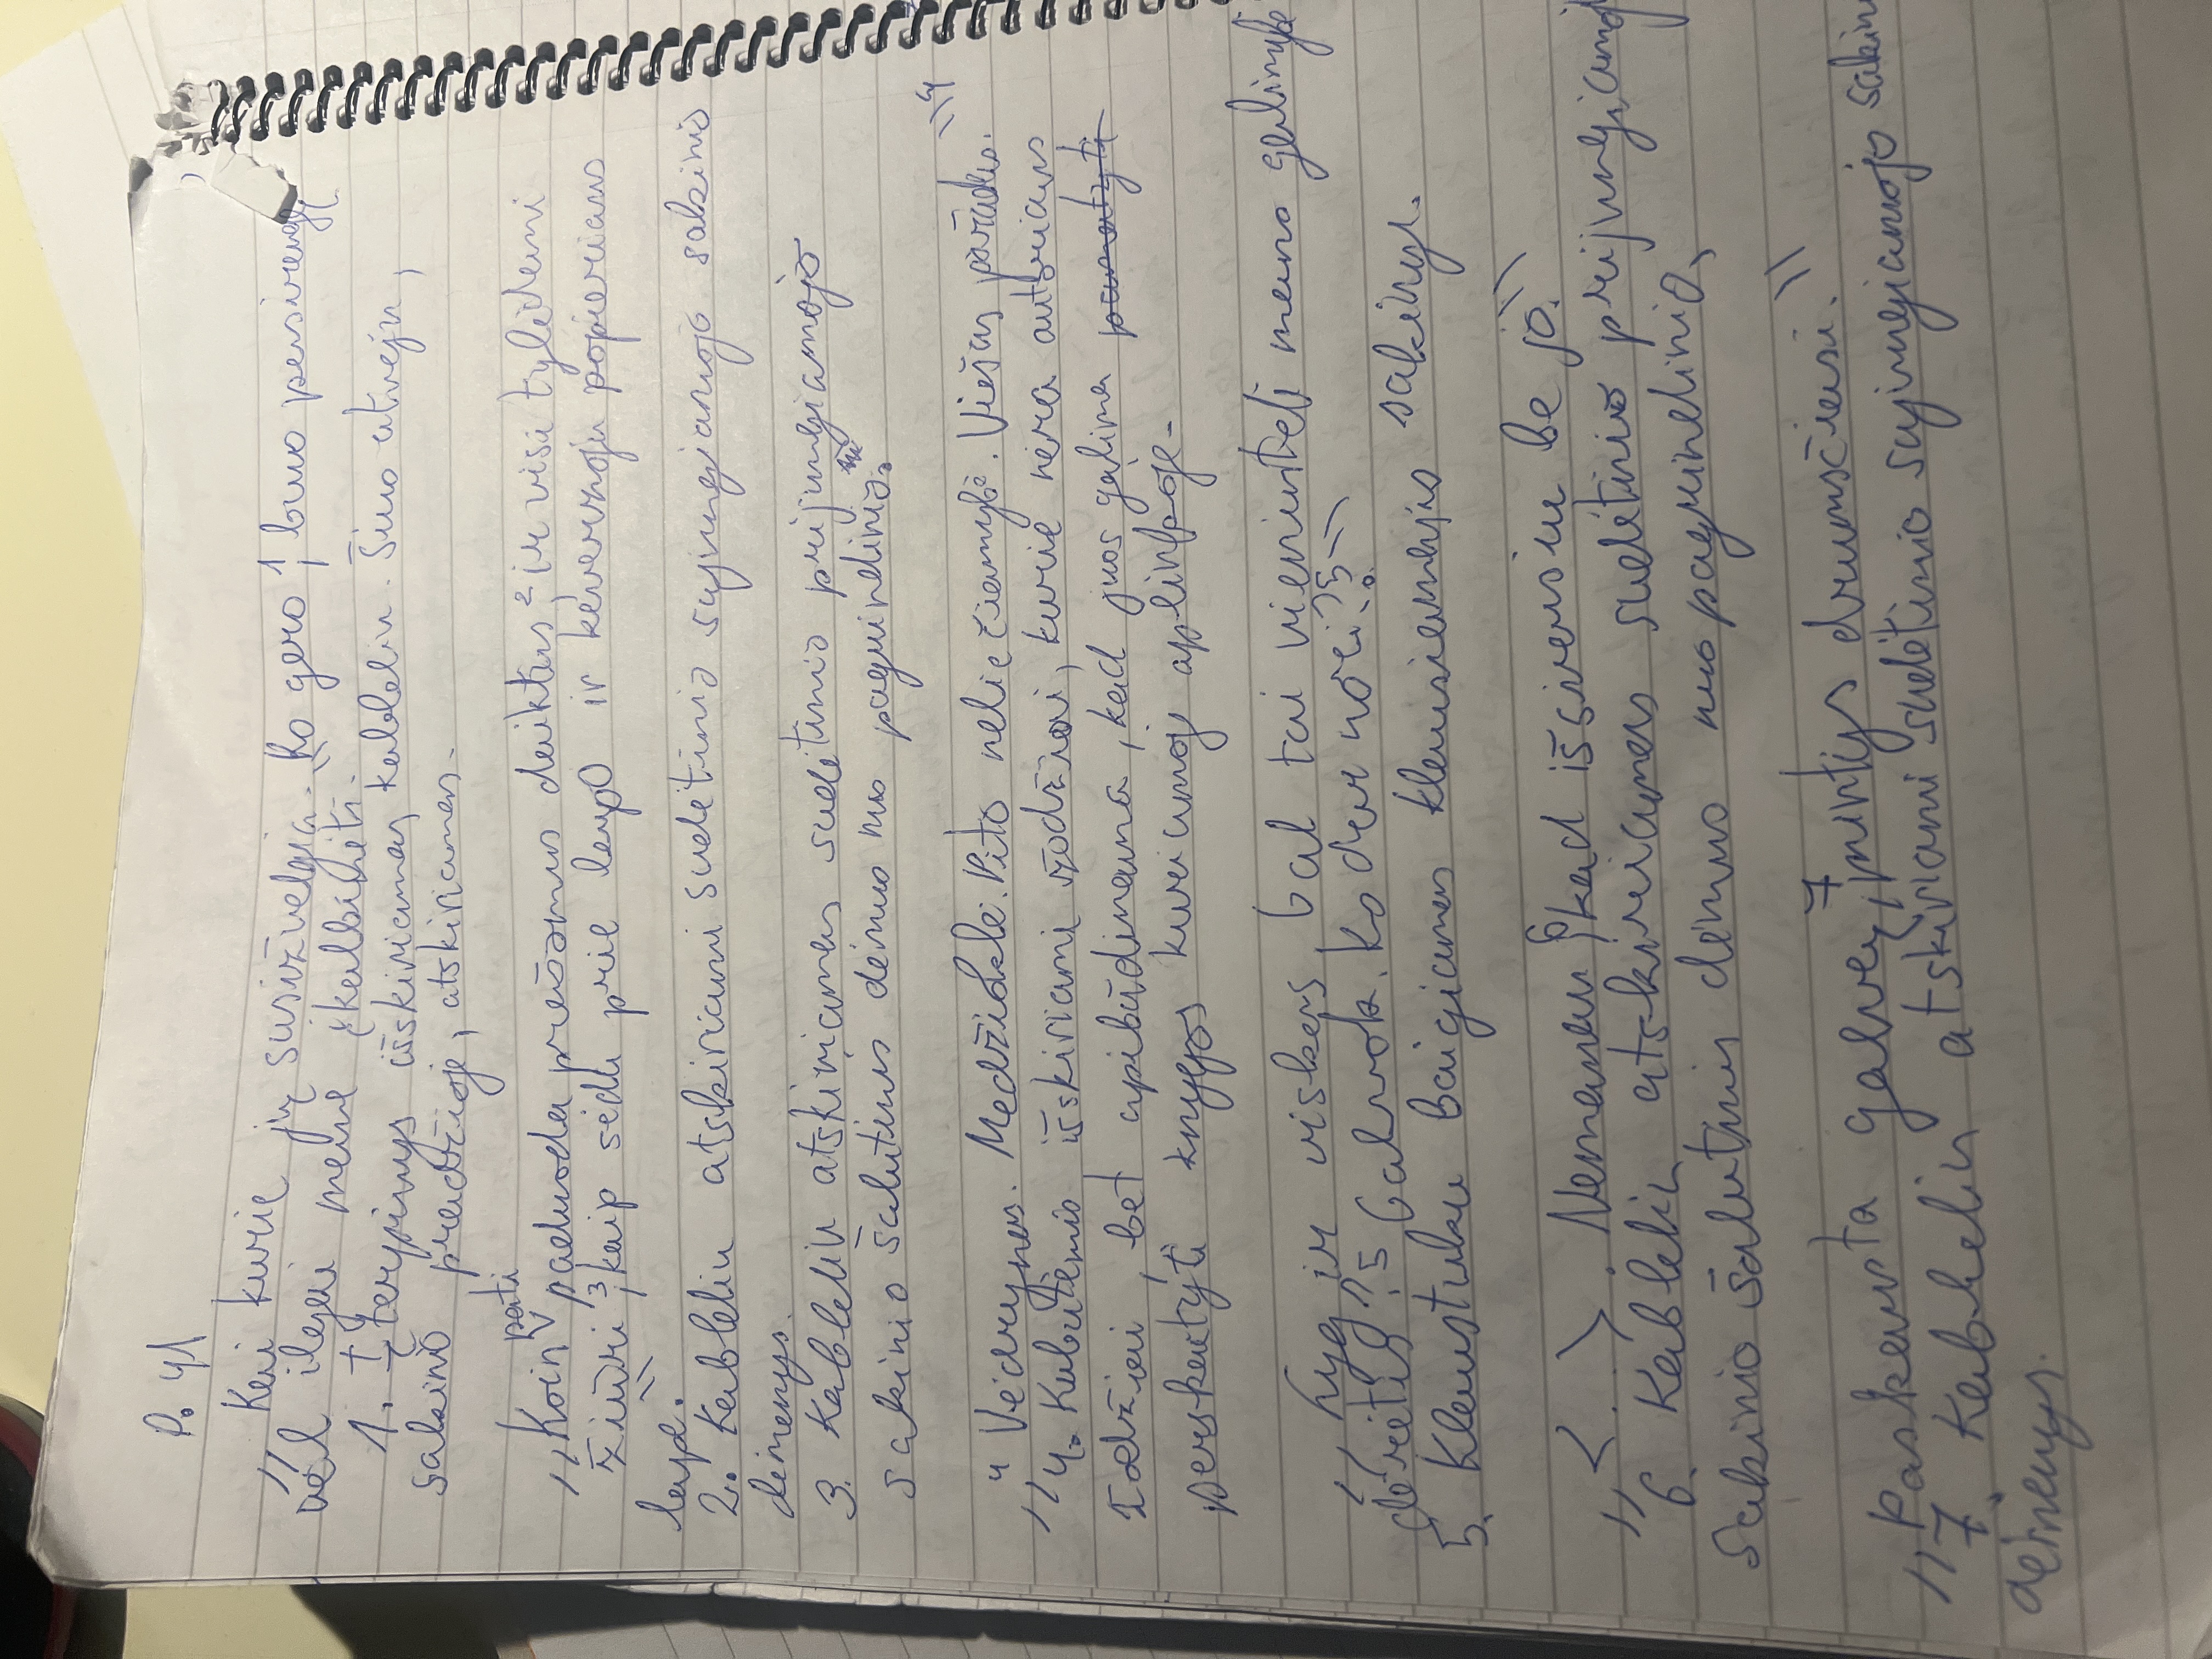 P. 41
" Kai kurie jų susižvelgia. " Ko gero¹, buvo pasirengę
dėl ilgai mane įkalbinėti. Šiuo atveju,
1. Įterpinys išskiriamas kableliu.
sakinio pradžioje, atskiriamas.
pati
"Koin paduoda prašomus daiktus,² ir visi tylėdami
žiūri³, kaip sėdu prie lempo ir kevernoju popieriaus
lape. "
2. Kableliu atskiriami sudėtinio sujungiamojo sakinio
dėmenys.
3. Kableliu atskiriamas sudėtinio prijungiamojo
sakinio šalutinis dėmuo nuo pagrindinio.
" Vėdrynas. Medžioklė. Pito neliečiamybė. Viešas parodos. "4
"4. Kabutėmis išskiriami žodžiai, kurie nėra autoriaus
žodžiai, bet apibūdinama, kad juos galima pamatyti
perskaityti knygos kuriamoj aplinkoje.
" Lyg ir viskas, gal tai vienintelį mano galimybė
ateitis?5 Galvok. Ko dar nori?5 "
5. Klaustuku baigiamas klausiamasis sakinys.
" < . . > . Nemanau,6 kad išsiversiu be jo. "
6. Kableliu atskiriamas sudėtinio prijungiamojo
sakinio šalutinis dėmuo nuo pagrindinio,
" Paskausta galvą,7 mintys drumsčiasi. "
"7 Kableliu atskiriami sudėtinio sujungiamojo sakinio
dėmenys.